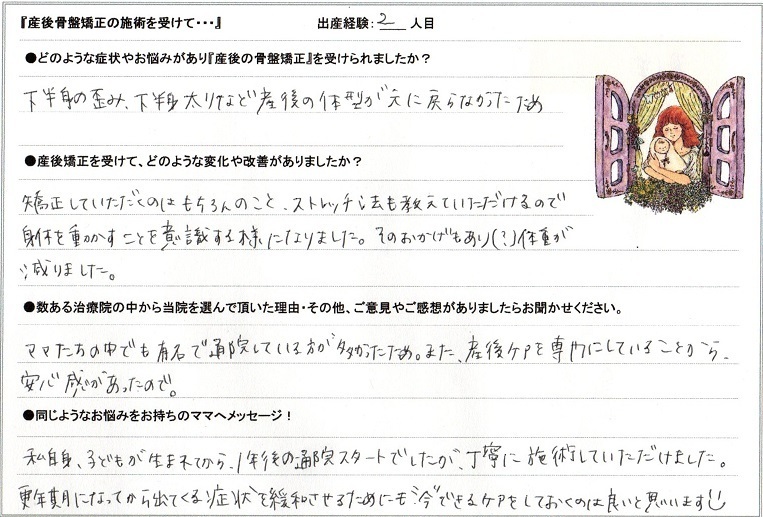 『産後骨盤矯正の施術を受けて・・・』 出産経験: 2 人目
●どのような症状やお悩みがあり『産後の骨盤矯正』を受けられましたか？
下半身の歪み、下半身太りなど産後の体型が元に戻らなかったため
●産後矯正を受けて、どのような変化や改善がありましたか？
矯正していただくのはもちろんのこと、ストレッチ法も教えていただけるので
身体を動かすことを意識する様になりました。そのおかげもあり(？)体重が
減りました。
●数ある治療院の中から当院を選んで頂いた理由・その他、ご意見やご感想がありましたらお聞かせください。
ママたちの中でも有名で通院している方が多かったため。また、産後ケアを専門にしていることから、
安心感があったので。
●同じようなお悩みをお持ちのママへメッセージ！
私自身、子どもが生まれてから、1年後の通院スタートでしたが、丁寧に施術していただけました。
更年期になってから出てくる症状を緩和させるためにも"今"できるケアをしておくのは良いと思います